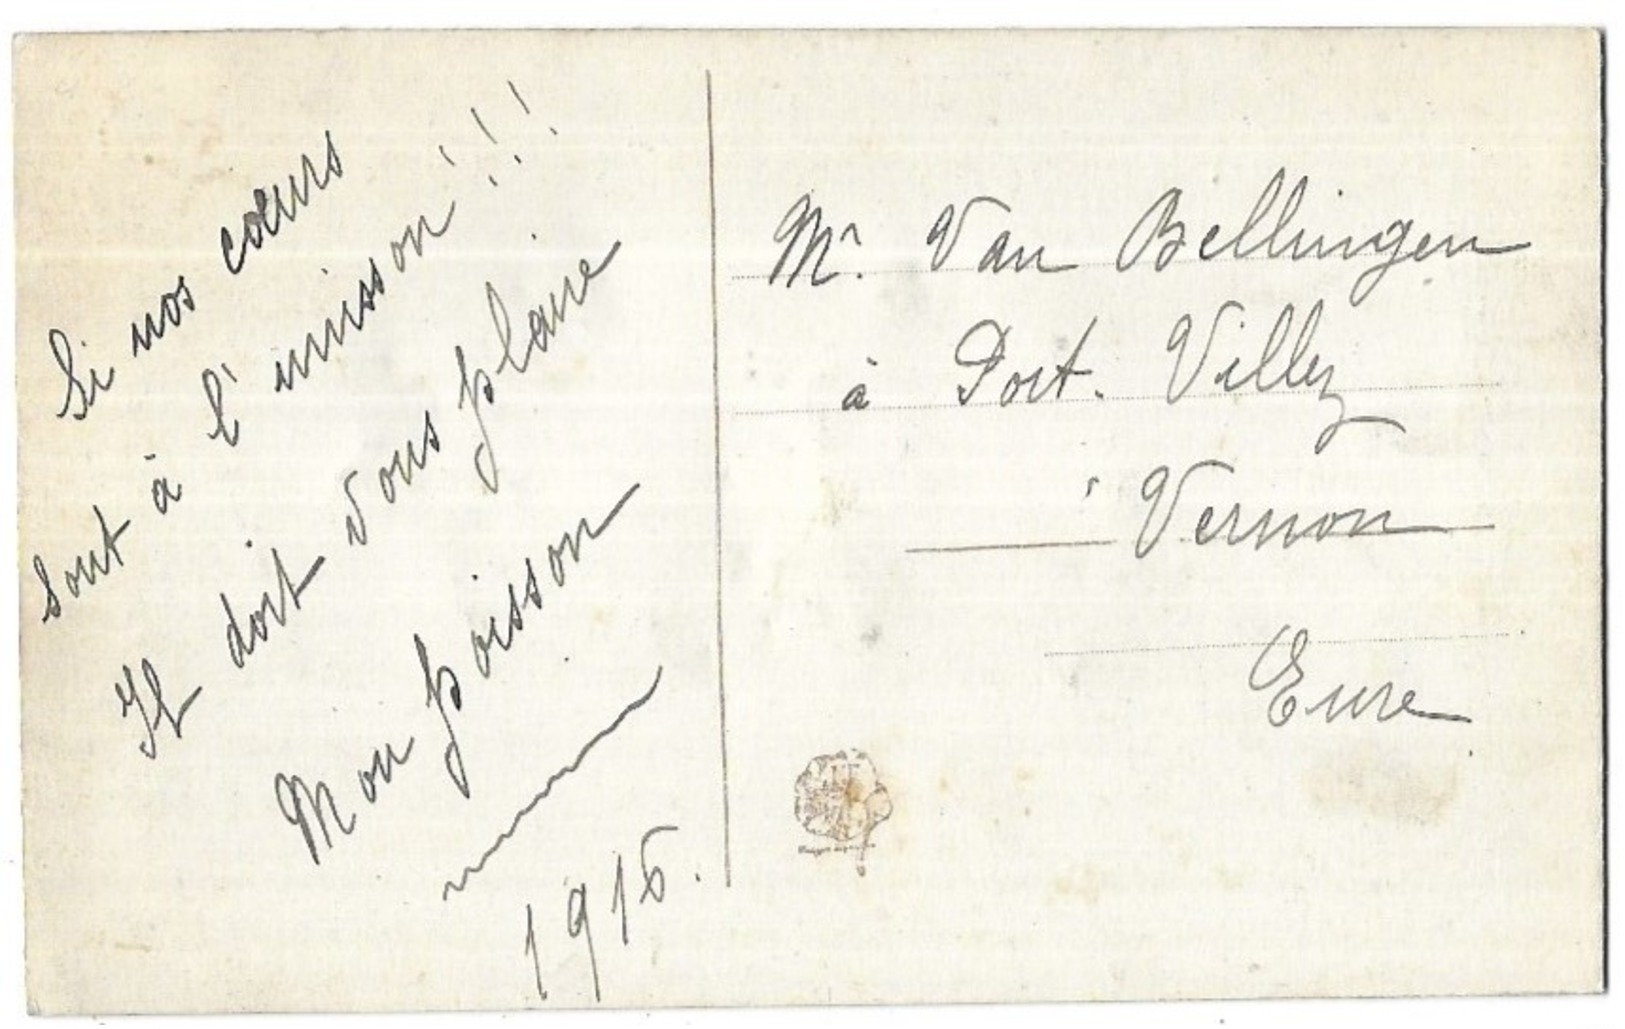 Si nos cœurs
sont à l'unisson!!!
Il doit vous plaire
Mon poisson
1916.
Mr. Van Bellingen
à Port. Villez
Vernon
Eure